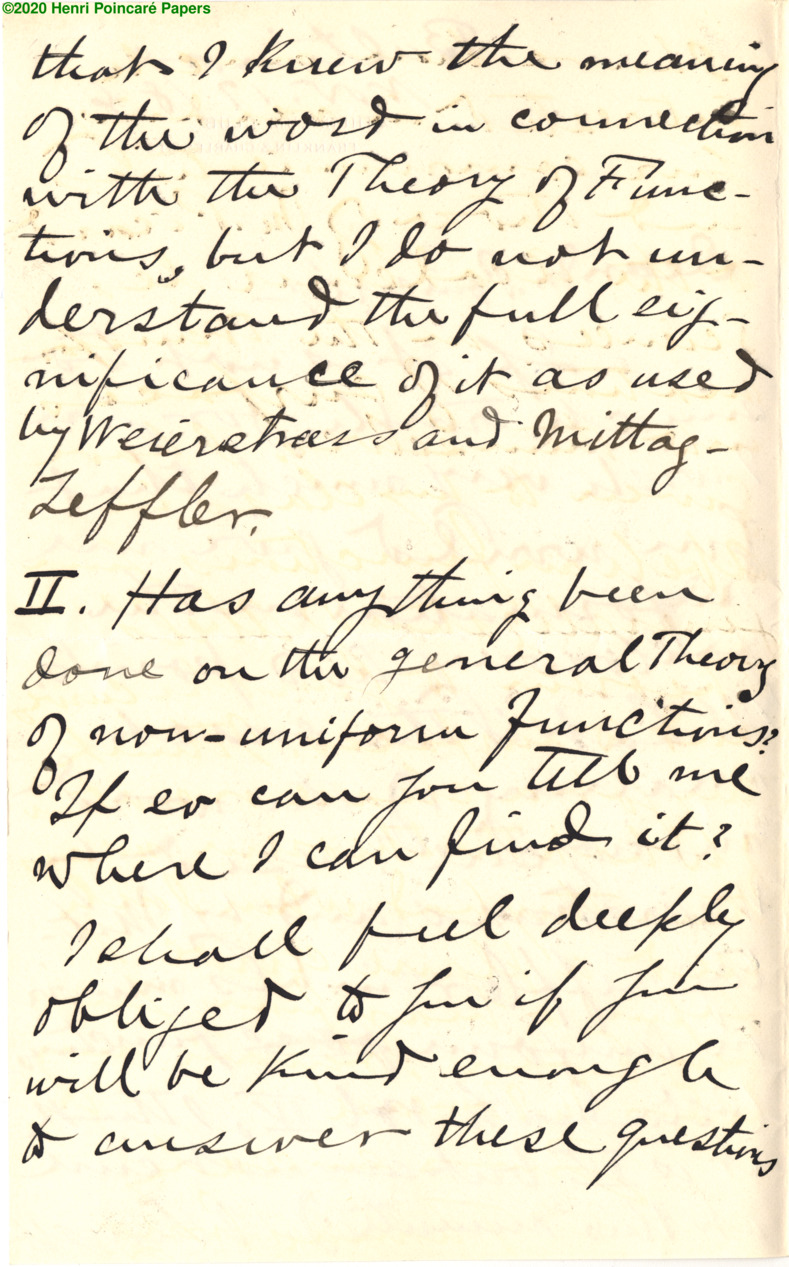 ©2020 Henri Poincaré Papers
that I knew the meaning
of the word in connection
with the Theory of Func-
tions, but I do not un-
derstand the full sig-
nificance of it as used
by Weierstrass and Mittag-
Leffler.
II. Has anything been
done on the general Theory
of non-uniform functions?
If so can you tell me
where I can find it?
I shall feel deeply
obliged to you if you
will be kind enough
to answer these questions